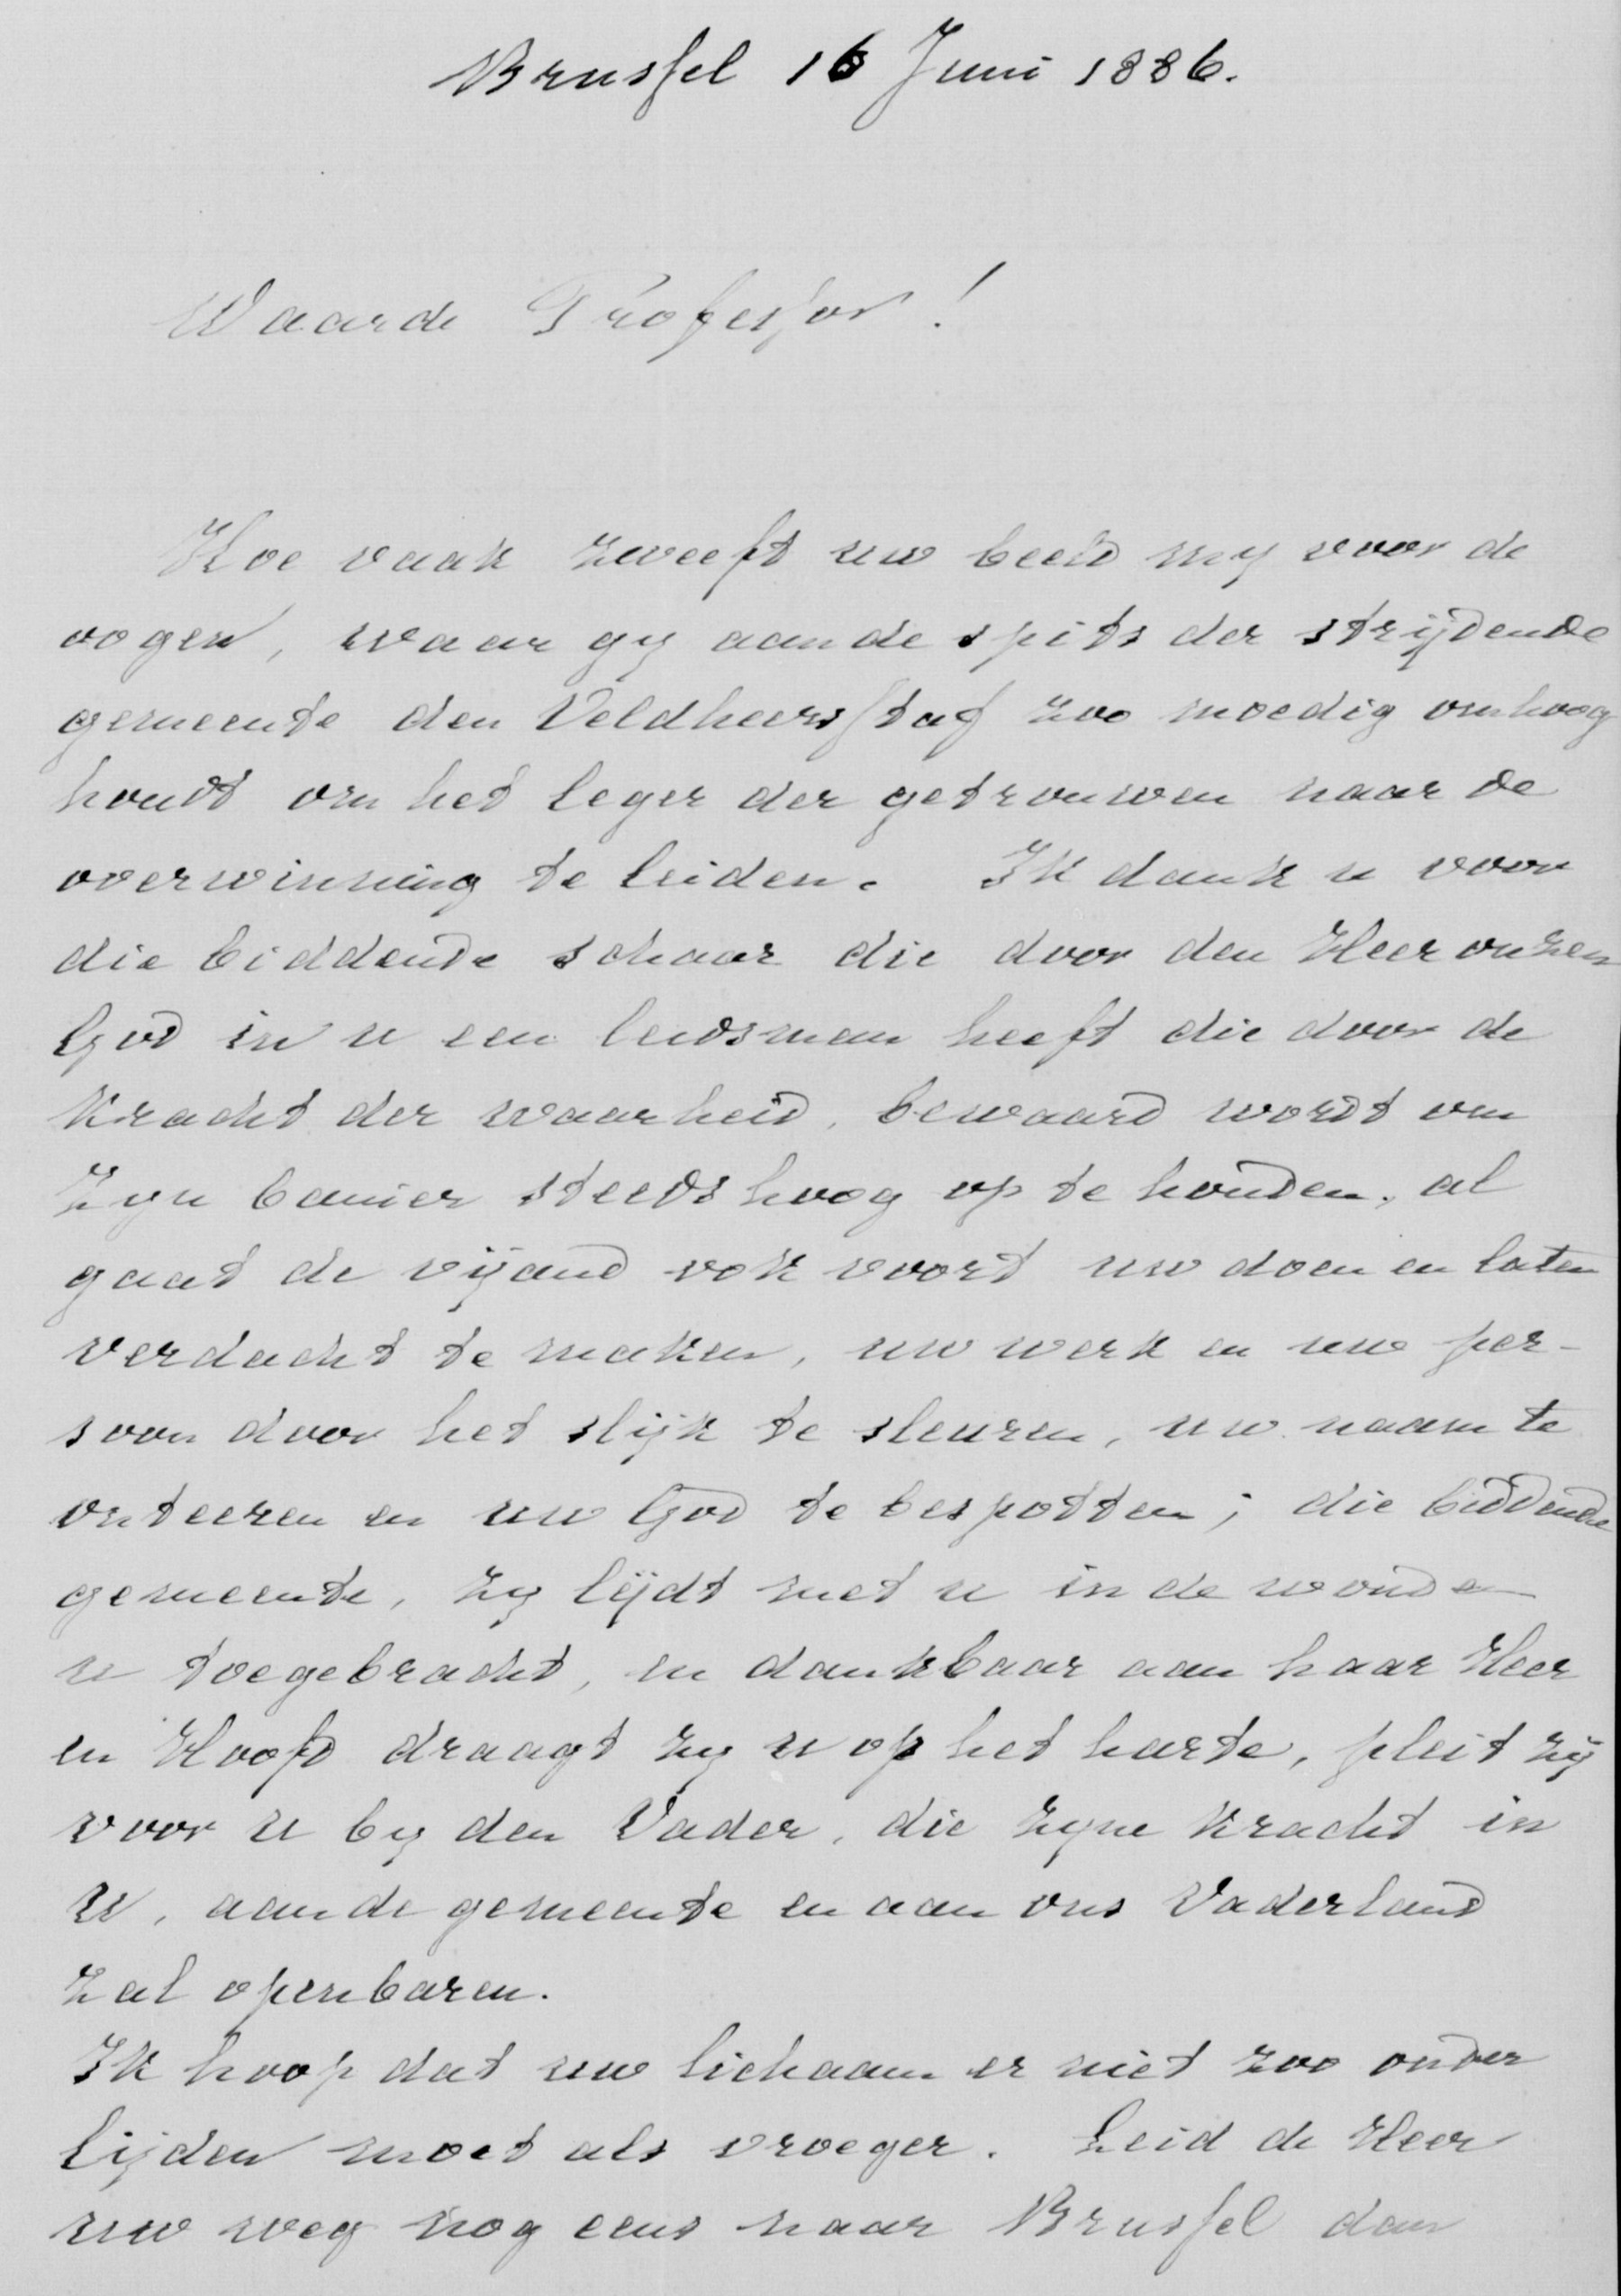 Brussel 16 Juni 1886.
Waarde Professor!
Hoe vaak zweeft uw beeld my voor de
oogen, waar gy aan de spits der strijdende
gemeente den Veldheersstaf zoo moedig omhoog
houdt om het leger der getrouwen naar de
overwinning te leiden. Ik dank u voor
die biddende schaar die door den Heer onzen
God in u een leidsman heeft die door de
kracht der waarheid, bewaard wordt om
Zyn banier steeds hoog op te houden, al
gaat de vijand ook voort uw doen en laten
verdacht te maken, uw werk en uw per-
soon door het slijk te sleuren, uw naam te
onteeren en uw God te bespotten; die biddende
gemeente, zy lijdt met u in de wonden
u toegebracht, en dankbaar aan haar Heer
en Hoofd draagt zy u op het harte, pleit zij
voor u by den Vader, die zyne kracht in
U, aan de gemeente en aan ons Vaderland
zal openbaren.
Ik hoop dat uw lichaam er niet zoo onder
lijden moet als vroeger. Leid de Heer
uw weg nog eens naar Brussel dan